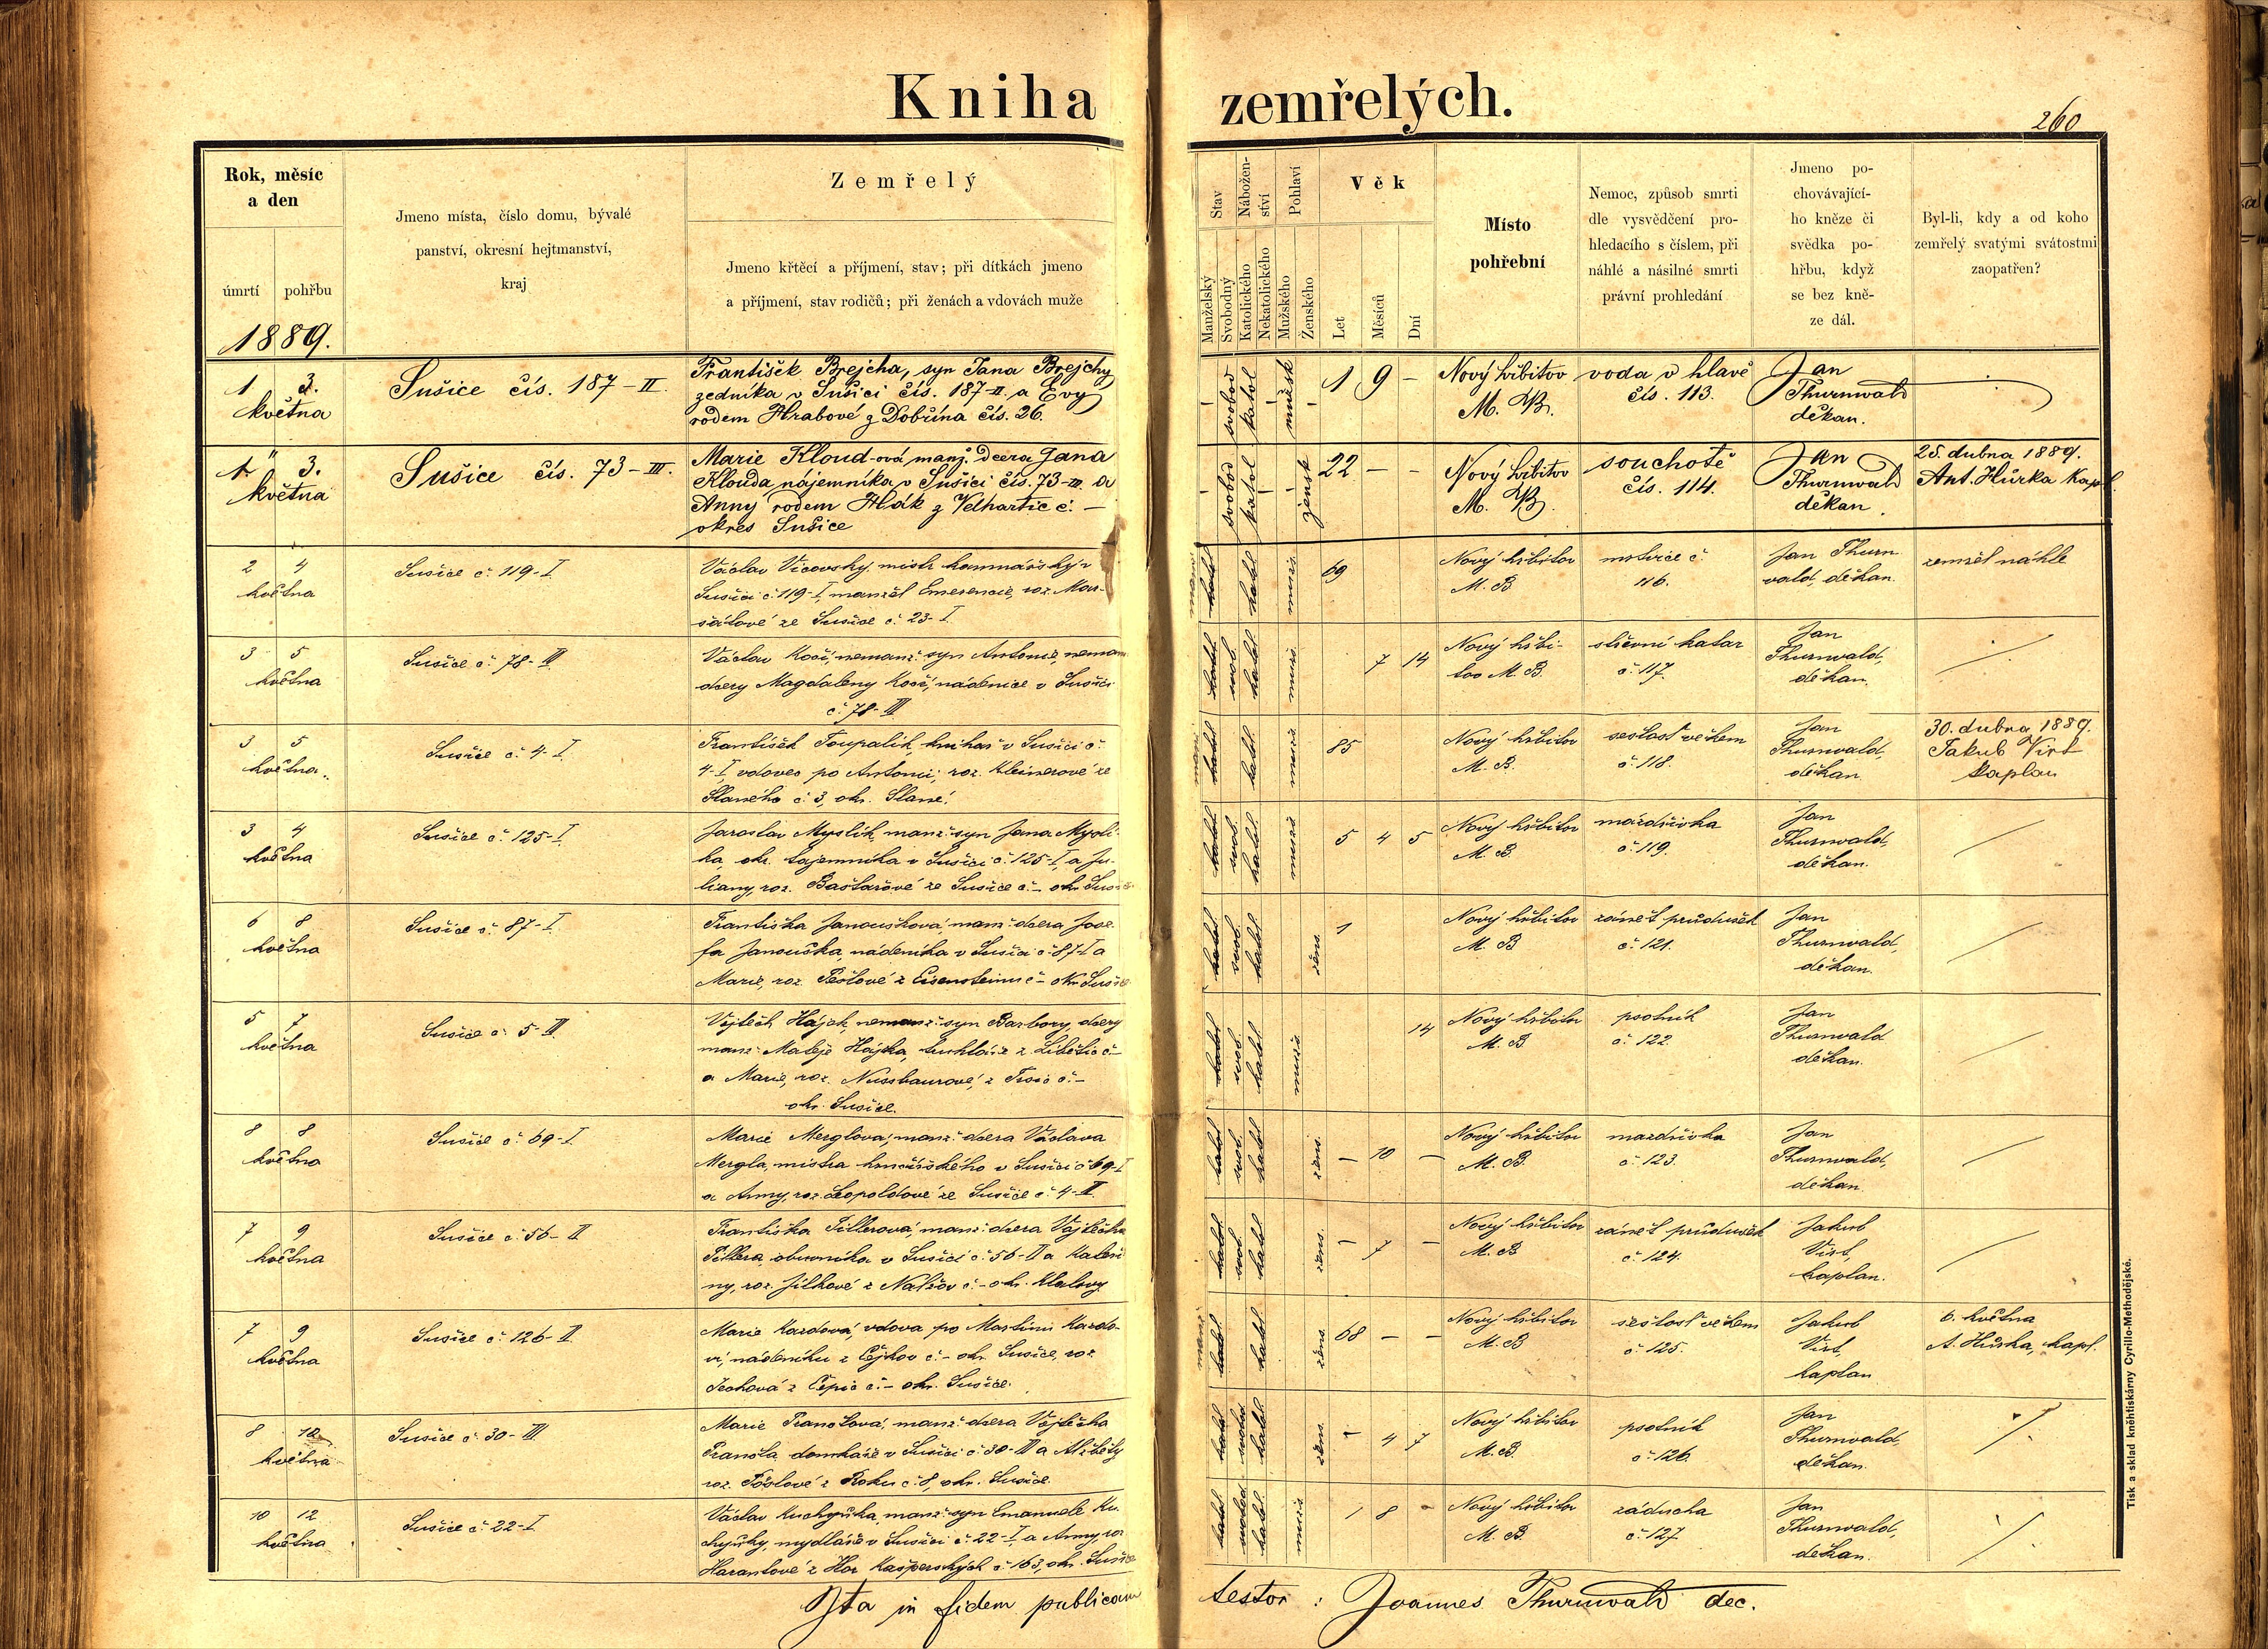 Kniha zemřelých.
260
Rok, měsíc
a den
úmrtí pohřbu
1889.
Jmeno místa, číslo domu, bývalé
panství, okresní hejtmanství,
kraj
Zemřelý
Jmeno křtěcí a příjmení, stav; při dítkách jmeno
a příjmení, stav rodičů; při ženách a vdovách muže
Stav
Manželský
Svobodný
Nábožen-
ství
Katolického
Nekatolického
Pohlaví
Mužského
Ženského
Věk
Let
Měsíců
Dní
Místo
pohřební
Nemoc, způsob smrti
dle vysvědčení pro-
hledacího s číslem, při
náhlé a násilné smrti
právní prohledání
Jmeno po-
chovávající-
ho kněze či
svědka po-
hřbu, když
se bez kně-
ze dál.
Byl-li, kdy a od koho
zemřelý svatými svátostmi
zaopatřen?
1 3.
května
Sušice čís. 187-II.
František Brejcha, syn Jana Brejchy
zedníka v Sušici čís. 187-II. a Evy
rodem Hrabové z Dobřína čís. 26.
svobod katol mužsk
1 9 -
Nový hřbitov
M. B.
voda v hlavě
čís. 113.
Jan
Thurnwald
děkan.
1. 3.
května
Sušice čís. 73-III.
Marie Kloud-ová manž. dcera Jana
Klouda nájemníka v Sušici čís. 73-III. a
Anny rodem Hák z Velhartic č. -
okres Sušice
svobod katol žensk
22 - -
Nový hřbitov
M. B.
souchotě
čís. 114.
Jan
Thurnwald
děkan.
25. dubna 1889.
Ant. Hůrka kapl.
2 4
května
Sušice č. 119-I
Václav Vícovský mistr komínářský v
Sušici č. 119-I, manžel Emerencie, roz. Mar-
šátové ze Sušice č. 23-I
katol. mužs.
69
Nový hřbitov
M. B
mrtvice č.
116.
Jan Thurn
vald, děkan.
zemřel náhle
3 5
května
Sušice č. 78-III
Václav Kočí, nemanž. syn Antonie, neman
dcery Magdaleny Kočí, nádenice v Sušici
č. 78-III
svob. katol. mužs.
7 14
Nový hřbi-
tov M. B.
střevní katar
č. 117.
Jan
Thurnwald,
děkan.
3 5
května.
Sušice č. 4-I.
František Toupalík, knihař v Sušici č.
4-I, vdovec po Antonii, roz. Kleinerové ze
Slaného č. 3, okr. Slané.
katol. mužs
85
Nový hřbitov
M. B.
sešlosť věkem
č. 118.
Jan
Thurnwald,
děkan
30. dubna 1889.
Jakub Virt
kaplan
3 4
května
Sušice č. 125-I.
Jaroslav Myslík, manž. syn Jana Myslí-
ka, okr. tajemníka v Sušici č. 125-I, a Ju-
liany, roz. Baštařové ze Sušice č. - okr. Sušice
svob. katol. mužs
5 4 5
Nový hřbitov
M. B.
mázdřivka
č. 119.
Jan
Thurnwald,
děkan.
6 8
května
Sušice č. 87-I.
Františka Janoušková, manž. dcera Jose-
fa Janouška, nádeníka v Sušici č. 87-I a
Marie, roz. Peštové z Eisensteinu č - okr. Sušice
svob. katol. žens.
1
Nový hřbitov
M. B
zánět průdušek
č. 121.
Jan
Thurnwald,
děkan.
5 7
května
Sušice č. 5-III.
Vojtěch Hájek, nemanž. syn Barbory, dcery
manž. Matěje Hájka, truhláře z Libětic č. -
a Marie, roz. Nussbaurové, z Trsic č. -
okr. Sušice.
svob. katol. mužs.
14
Nový hřbitov
M. B
psotník
č. 122.
Jan
Thurnwald
děkan.
8 8
května
Sušice č. 69-I
Marie Merglova, manž. dcera Václava
Mergla, mistra hrnčířského v Sušici č. 69-I
a Anny, roz. Leopoldové ze Sušice č. 4-II.
svob. katol. žens.
- 10 -
Nový hřbitov
M. B.
mázdřivka
č. 123.
Jan
Thurnwald,
děkan
7 9
května
Sušice č. 56-II
Františka Pillerová, manž. dcera Vojtěcha
Pillera, obuvníka v Sušici č. 56-II a Kateři
ny, roz. Jílkové z Nalžov č. - okr. Klatovy.
svob. katol. žens.
- 7 -
Nový hřbitov
M. B
zánět průdušek
č. 124.
Jakub
Virt,
kaplan.
7 9
května
Sušice č. 126-II
Marie Kazdová, vdova po Martinu Kazdo-
vi, nádeníku z Čejkov č. - okr. Sušice, roz.
Jechová z Čepic č. - okr. Sušice.
katol. žens.
68 - -
Nový hřbitov
M. B
sešlosť věkem
č. 125.
Jakub
Virt,
kaplan
6. května
A. Hůrka, kapl.
8 10
května
Sušice č. 30-III.
Marie Pranotová, manž. dcera Vojtěcha
Pranota, domkaře v Sušici č. 30-III a Alžběty
roz. Pöslové z Roku č. 8, okr. Sušice.
svobod. katol. žens.
- 4 7
Nový hřbitov
M. B.
psotník
č. 126.
Jan
Thurnwald,
děkan.
10 12
května
Sušice č. 22-I
Václav Kuchyňka, manž. syn Emanuele Ku-
chyňky, mydláře v Sušici č. 22-I a Anny, roz
Harantové z Hor Kašperských č. 163, okr. Sušice
svobod. katol. mužs
1 8 -
Nový hřbitov
M. B.
záducha
č. 127
Jan
Thurnwald,
děkan.
Ita in fidem publicam testor : Joannes Thurnwald dec.
Tisk a sklad kněhtiskárny Cyrillo-Methodějské.